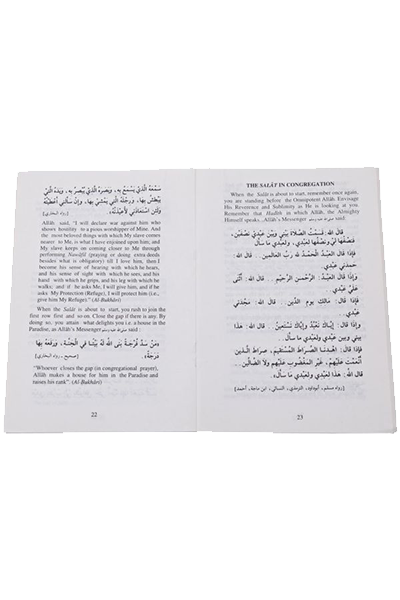 سَمْعَهُ الَّذِي يَسْمَعُ بِهِ، وَبَصَرَهُ الَّذِي يُبْصِرُ بِهِ، وَيَدَهُ الَّتِي
يَبْطِشُ بِهَا، وَرِجْلَهُ الَّتِي يَمْشِي بِهَا، وَإِنْ سَأَلَنِي أَعْطَيْتُهُ
وَلَئِنِ اسْتَعَاذَنِي لَأُعِيذَنَّهُ» (رواه البخاري)
Allâh said, "I will declare war against him who
shows hostility to a pious worshipper of Mine. And
the most beloved things with which My slave comes
nearer to Me, is what I have enjoined upon him; and
My slave keeps on coming closer to Me through
performing Nawâfil (praying or doing extra deeds
besides what is obligatory) till I love him, then I
become his sense of hearing with which he hears,
and his sense of sight with which he sees, and his
hand with which he grips, and his leg with which he
walks; and if he asks Me, I will give him, and if he
asks My Protection (Refuge), I will protect him (i.e.,
give him My Refuge)." (Al-Bukhâri)
When the Salât is about to start, you rush to join the
first row first and so on. Close the gap if there is any. By
doing so, you attain what delights you i.e. a house in the
Paradise, as Allâh's Messenger صلى الله عليه وسلم said:
«مَنْ سَدَّ فُرْجَةً بَنَى اللهُ لَهُ بَيْتًا فِي الْجَنَّةِ، وَرَفَعَهُ بِهَا
دَرَجَةً»
"Whoever closes the gap (in congregational prayer),
Allâh makes a house for him in the Paradise and
raises his rank". (Al-Bukhâri)
22
THE SALÂT IN CONGREGATION
When the Salât is about to start, remember once again,
you are standing before the Omnipotent Allâh. Envisage
His Reverence and Sublimity as He is looking at you.
Remember that Hadith in which Allâh, the Almighty
Himself speaks. Allâh's Messenger صلى الله عليه وسلم said:
قال اللهُ: قَسَمْتُ الصَّلَاةَ بَيْنِي وَبَيْنَ عَبْدِي نِصْفَيْنِ،
فَنِصْفُهَا لِي وَنِصْفُهَا لِعَبْدِي، وَلِعَبْدِي مَا سَأَلَ
فَإِذَا قَالَ الْعَبْدُ الْحَمْدُ لِلَّهِ رَبِّ الْعَالَمِينَ. قَالَ اللهُ:
حَمِدَنِي عَبْدِي
وَإِذَا قَالَ: الرَّحْمٰنِ الرَّحِيمِ. قَالَ اللهُ: أَثْنَى
عَلَيَّ عَبْدِي
وَإِذَا قَالَ: مَالِكِ يَوْمِ الدِّينِ. قَالَ اللهُ: مَجَّدَنِي
عَبْدِي
وَإِذَا قَالَ: إِيَّاكَ نَعْبُدُ وَإِيَّاكَ نَسْتَعِينُ. قَالَ اللهُ: هَذَا
بَيْنِي وَبَيْنَ عَبْدِي وَلِعَبْدِي مَا سَأَلَ.
فَإِذَا قَالَ: اهْدِنَا الصِّرَاطَ الْمُسْتَقِيمَ. صِرَاطَ الَّذِينَ
أَنْعَمْتَ عَلَيْهِمْ، غَيْرِ الْمَغْضُوبِ عَلَيْهِمْ وَلَا الضَّالِّينَ.
قَالَ اللهُ: هَذَا لِعَبْدِي وَلِعَبْدِي مَا سَأَلَ»
[رواه مسلم، أبوداود، الترمذي، النسائي، ابن ماجة، أحمد]
23